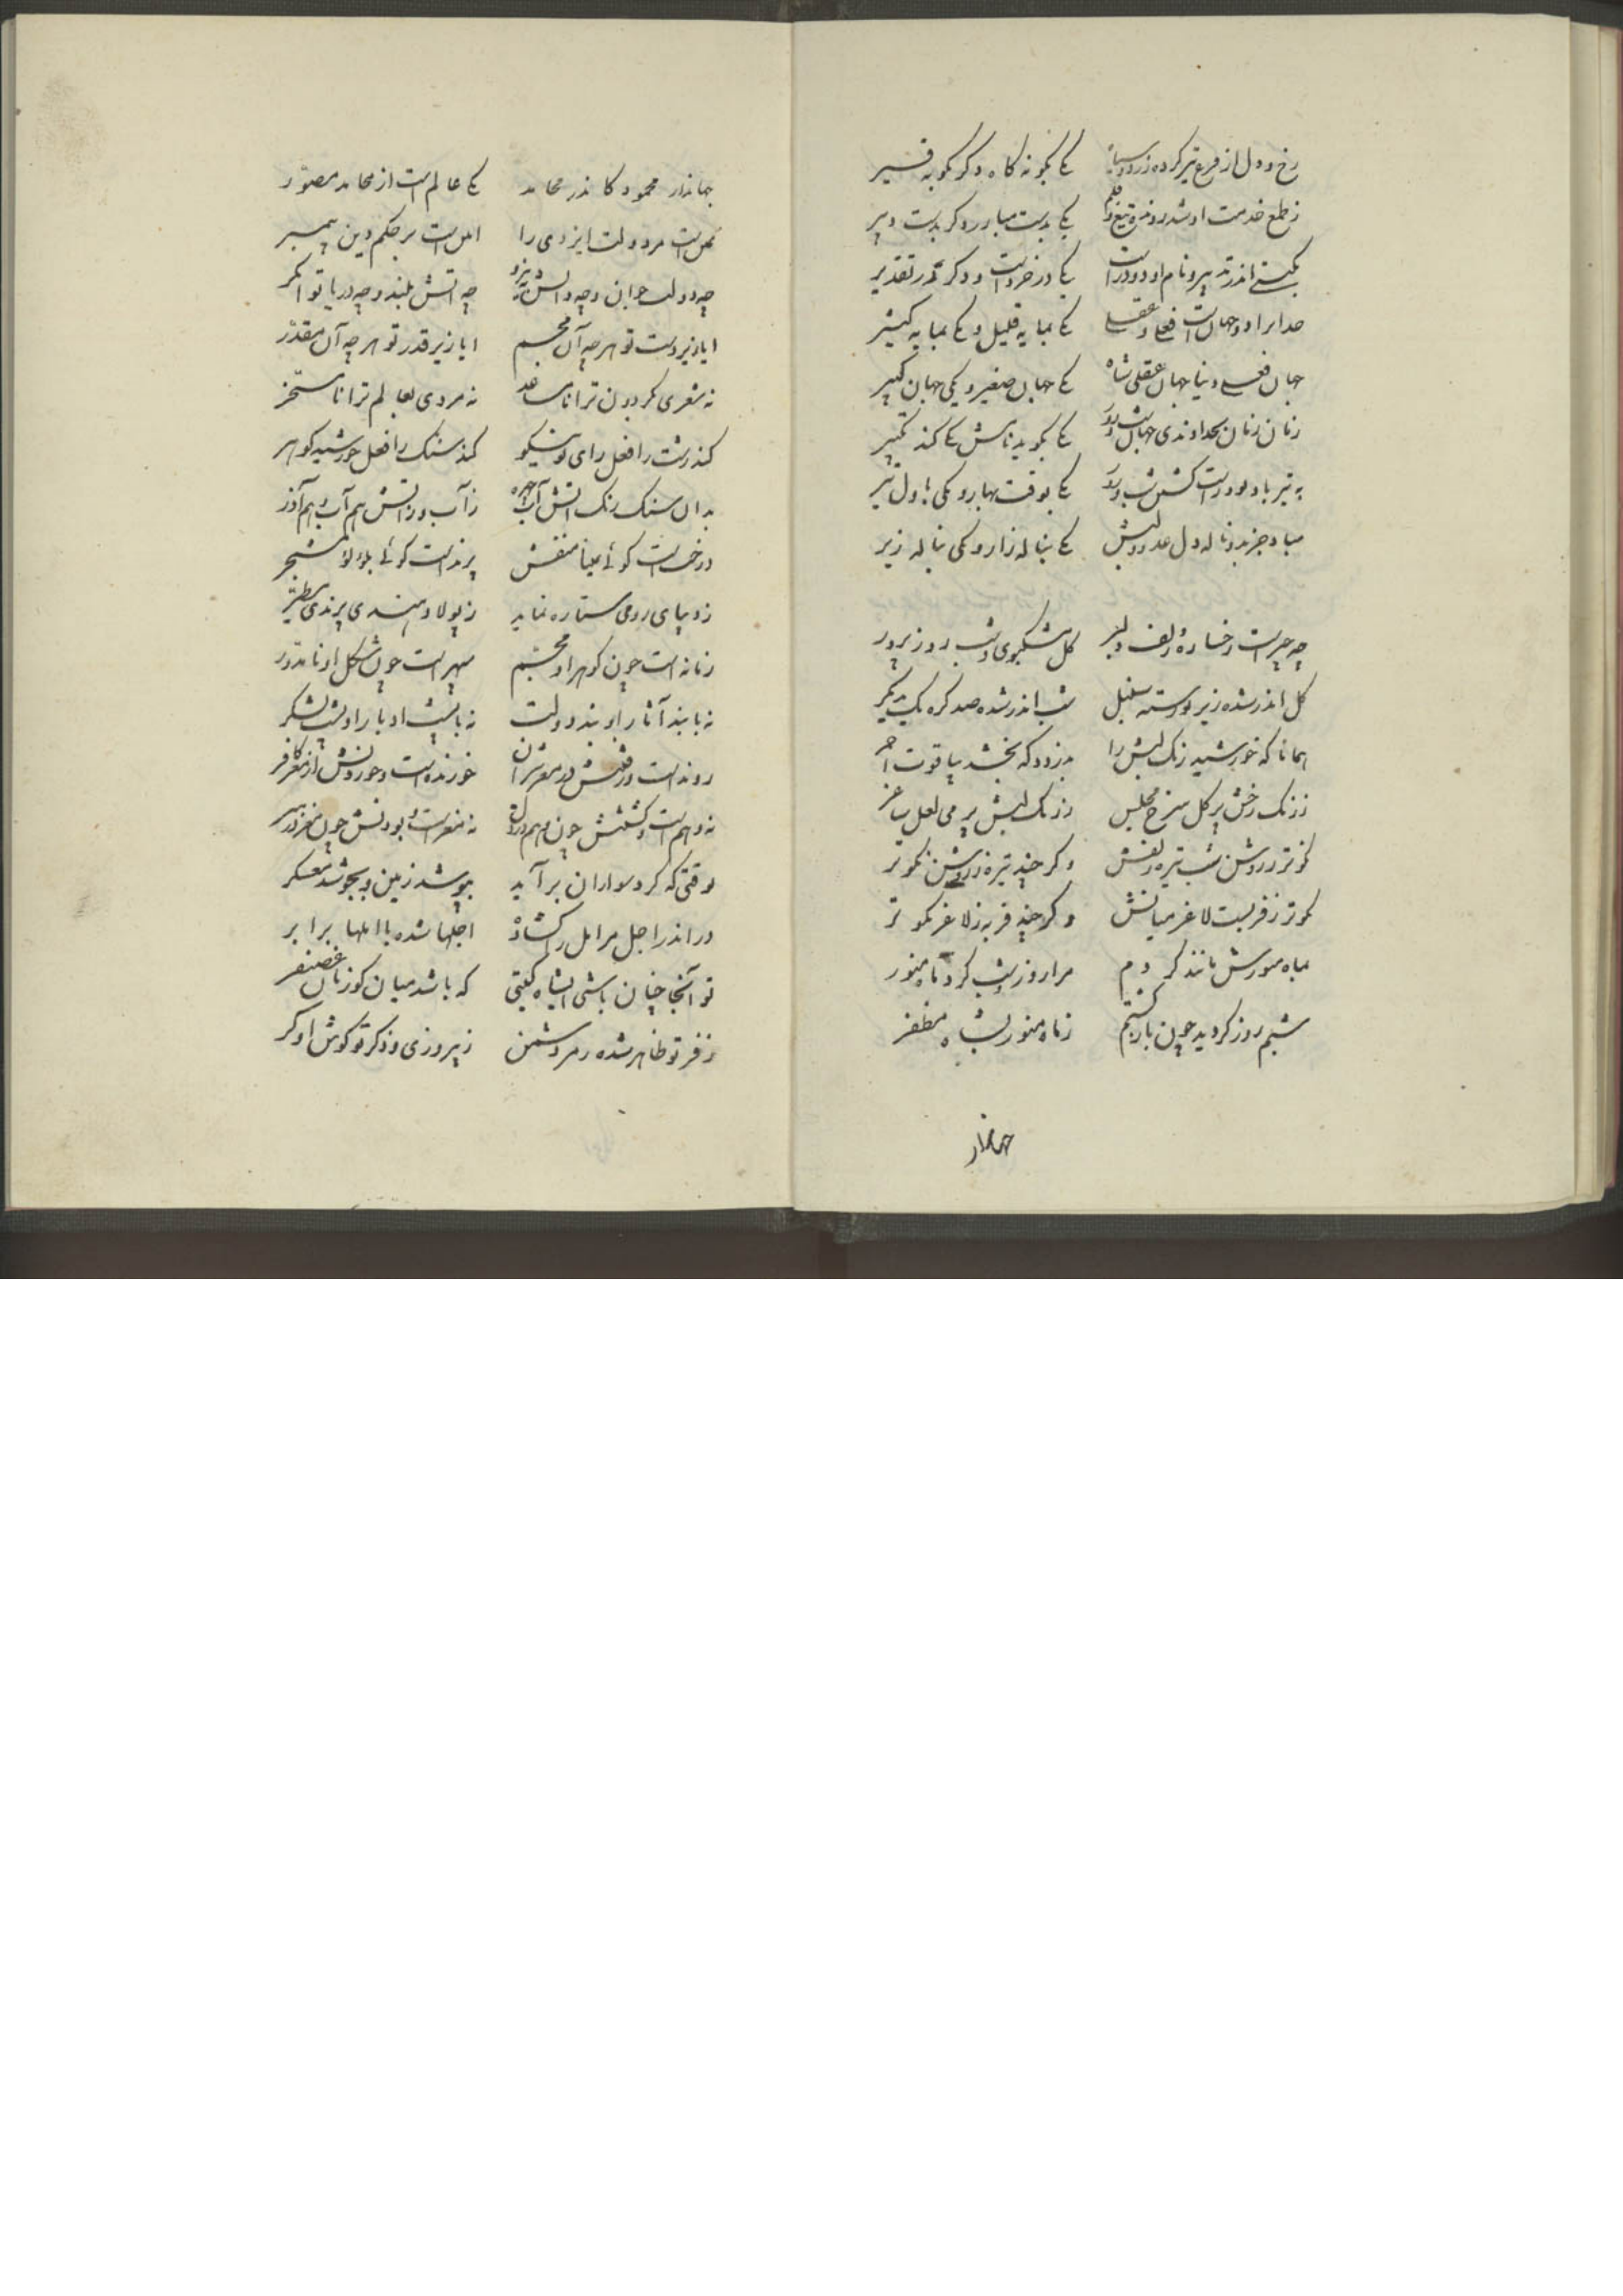 رخ و دل از فزع تیر کرده زرد و سیاه یکی بگونه کاه و دگر بگونه قیر
ز طمع خدمت او شد روزه تیغ و قلم یکی بدست مبارز و دگر بدست دبیر
بگیتی اندر تدبیر و نام او دو دراست یکی در خردست و دگر در تقدیر
خدایرا دو جهانست فعلی و عقلی یکی بمایه قلیل و یکی بمایه کثیر
جهان فعلی دنیا جهان عقلی شاه یکی جهان صغیر و یکی جهان کبیر
زبان زنان بخداوندی جهان شب و روز یکی بگوید نامش یکی کند تکبیر
به تیر باد بود راست شب و روز یکی بوقت بهار و یکی باول تیر
مباد جز بد و ناله دل عدوش یکی بناله زار و یکی بناله زیر
چه چیزست رخساره و زلف دلبر گل مشکبوی و شب روزپرور
گل اندر شده زیر نورسته سنبل شب اندر شده صد گره یک بدیگر
همانا که خورشید رنگ لبش را بدزدد که بخشد بیاقوت احمر
ز رنگ رخش پر گل سرخ مجلس ز رنگ لبش پر می لعل ساغر
نکوتر ز روشن شب تیره زلفش و گر چند تیره ز روشن نکوتر
نکوتر ز فربیست لاغر میانش و گر چند فربه ز لاغر نکوتر
بماه منورش مانند کردم مرا روز شب کرد ماه منور
شبم روز گردید چون بازگشتم ز ماه منور بشاه مظفر
جهاندار
جهاندار محمود کاندر محامد یکی عالم است از محامد مصور
عملست مر دولت ایزدی را املست بر حکم دین پیمبر
چه دولت جوان و چه دانش چه آتش بلند و چه دریا توانگر
ایا زیر دست تو هر چه آن مجسم ایا زیر قدر تو هر چه آن مقدر
نه شعری گردون ترا نامساعد نه مردی بعالم ترا نامسخر
کند زشت را فعل رای تو نیکو کند سنگ را فعل خورشید گوهر
بدان سنگ رنگ آتش آب چهره ز آب و ز آتش هم آب و هم آذر
درخشست گوئی بمینا منقش پرندست گوئی بلؤلؤ مشجر
ز دیبای رومی ستاره نماید ز پولاد هندی پرندی مطیر
زمانه است چون گوهر او مجسم سپهر است چون شکل او نامدور
نه بابند آثار او بند دولت نه با پشت او باد را پشت لشکر
رونده است و رفتنش در مغز شیران خورنده است و خوردنش از مغز کافر
نه وهم است و گشتنش چون وهم در دل نه مغز است و بودنش چون مغز در سر
بوقتی که گرد سواران برآید بپوشد زمین و بجوشد معسکر
در اندر اجل مر امل را گشاده اجلها شده با املها برابر
تو آنجا چنان باشی ای شاه گیتی که باشد میان گوزنان غضنفر
ز فر تو ظاهر شده رمز دشمن ز پیروزی و ذکر تو گوش او کر